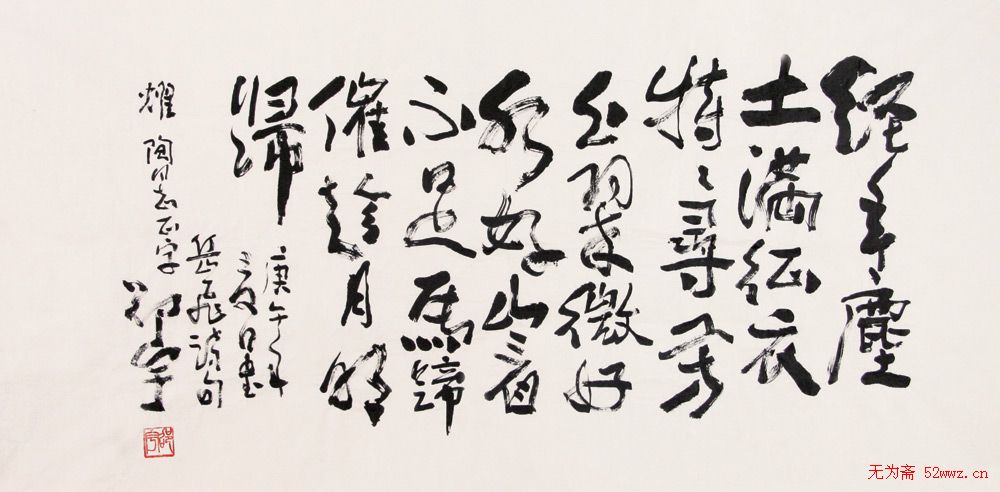 經年塵
土滿征衣
特〻尋芳
上翠微好
水好山看
不足馬蹄
催趁月明
歸
庚午年
夏日書
岳飛詩句
耀陶同志正字
邵宇
邵宇
无为斋 52wwz.cn